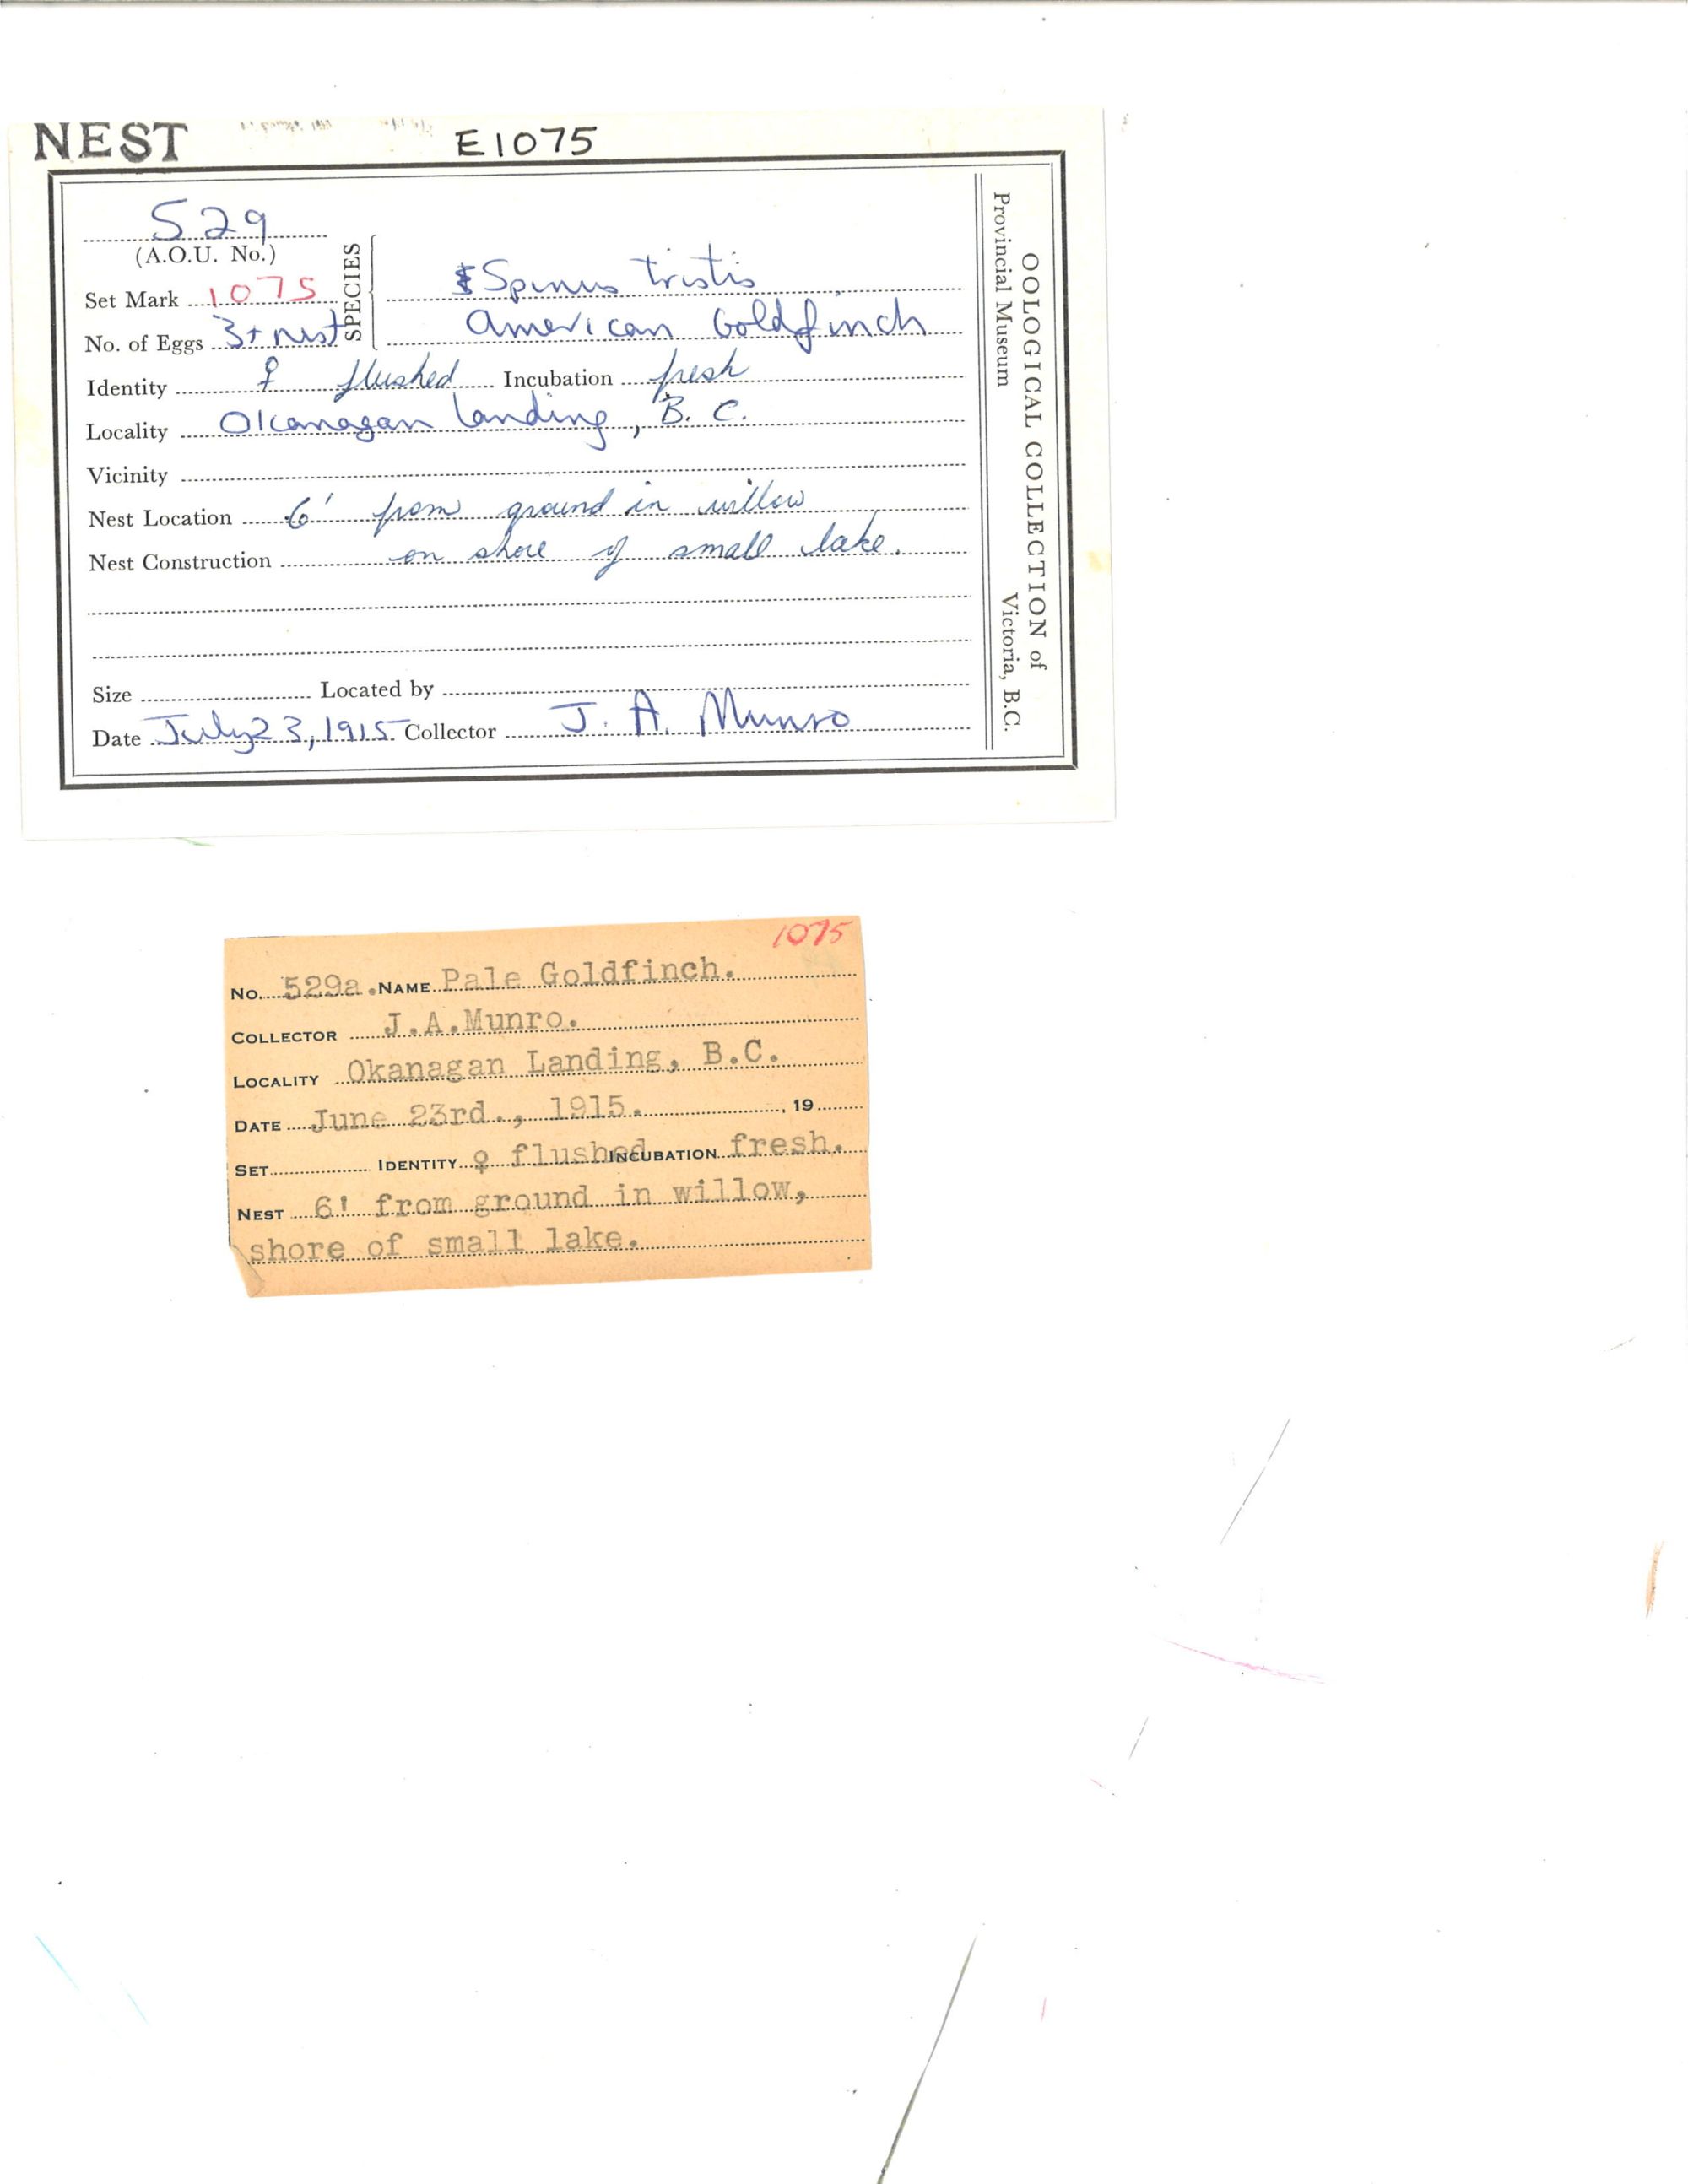 NEST
E1075
529
(A.O.U. No.)
Set Mark 1075
No. of Eggs 3+nest
SPECIES
Spinus tristis
American Goldfinch
Identity ♀ flushed Incubation fresh
Locality Okanagan Landing, B. C.
Vicinity
Nest Location 6' from ground in willow
Nest Construction on shore of small lake.
Size Located by
Date July 23, 1915 Collector J. A. Munro
OOLOGICAL COLLECTION of
Provincial Museum Victoria, B.C.
1075
No. 529a. NAME Pale Goldfinch.
COLLECTOR J.A.Munro.
LOCALITY Okanagan Landing, B.C.
DATE June 23rd., 1915. , 19
SET IDENTITY ♀ flushed INCUBATION fresh.
NEST 6' from ground in willow,
shore of small lake.